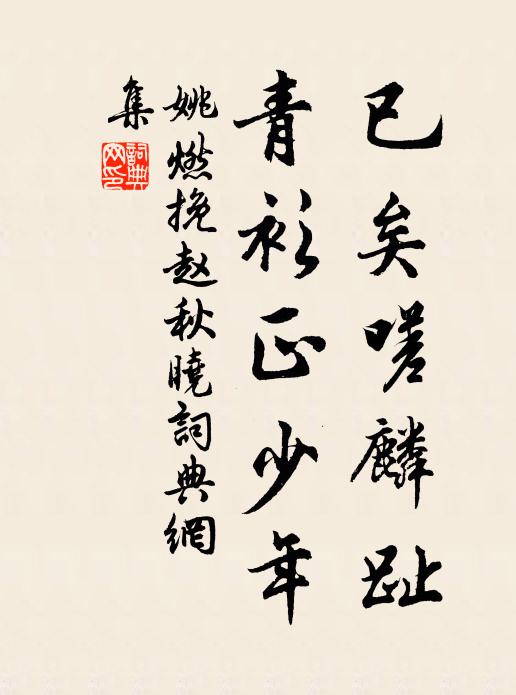 已矣嗟麟趾
青衫正少年
姚燃挽赵秋曉詞典網
集
詞典
网印